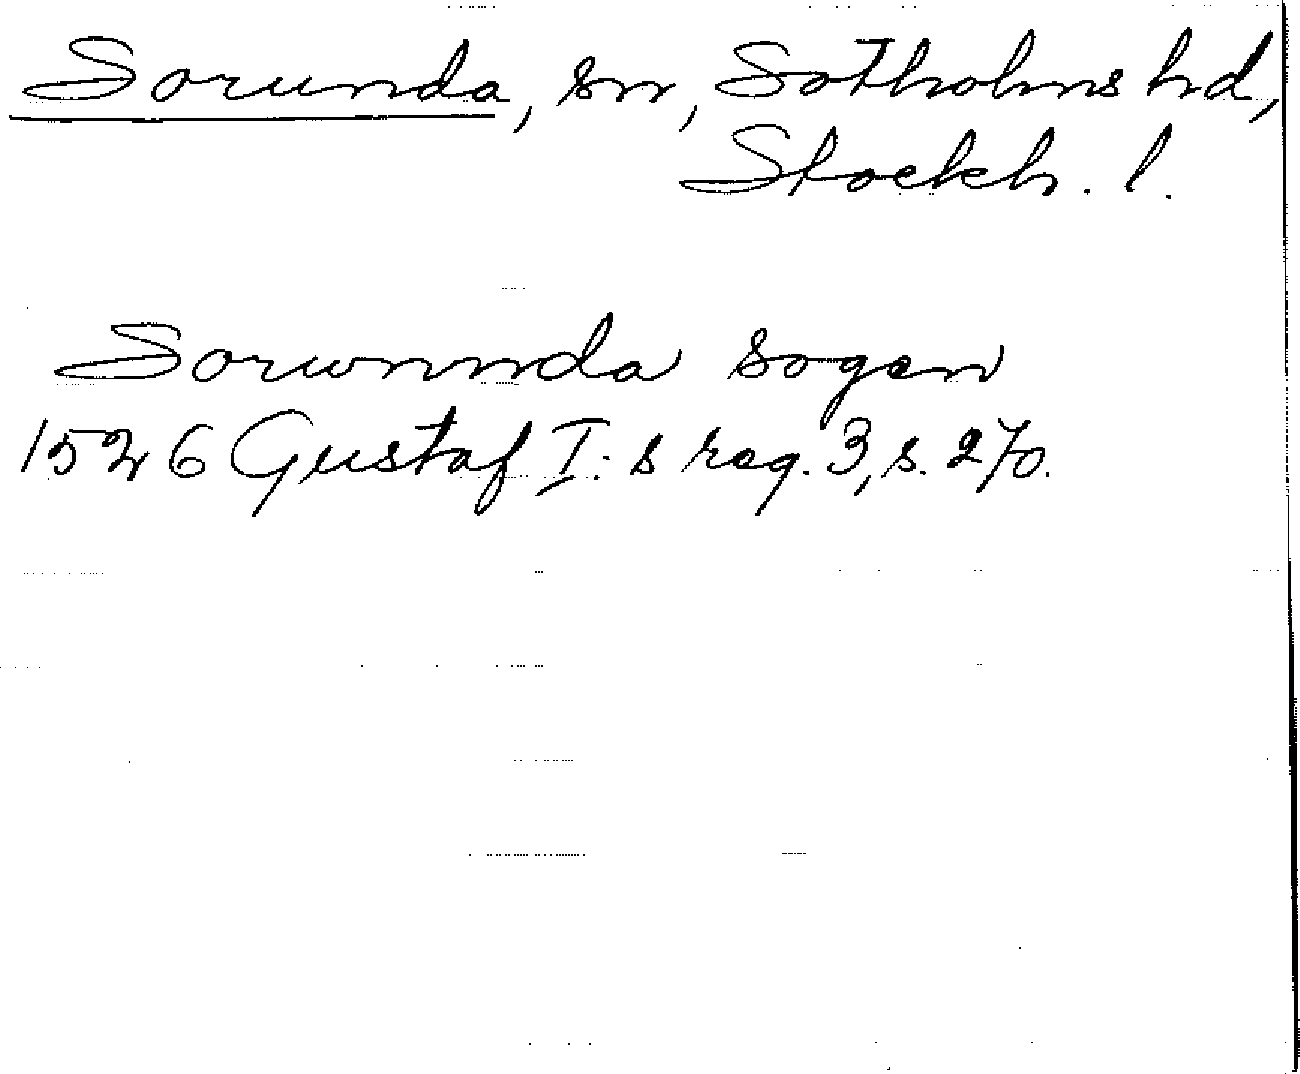 Sorunda, sn, Sotholms hd,
Stockh. l.
Sorwnnda sogen
1526 Gustaf I:s reg. 3, s. 270.